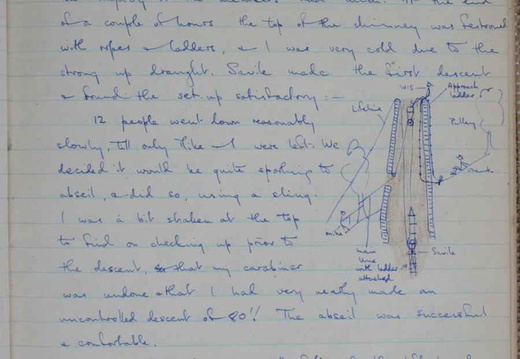 of a couple of hours the top of the chimney was festooned
with ropes & ladders, & I was very cold due to the
strong up draught. Savile made the first descent
& found the set-up satisfactory :—
12 people went down reasonably
slowly, till only Mike & I were left. We
decided it would be quite sporting to
abseil, & did so, using a sling.
I was a bit shaken at the top
to find on checking up prior to
the descent, that my carabiner
was undone & that I had very nearly made an
uncontrolled descent of 80'!! The abseil was successful
& comfortable.
Lifeline
WJS
Approach ladder
Pulley
Mike
main line with ladder attached
Savile